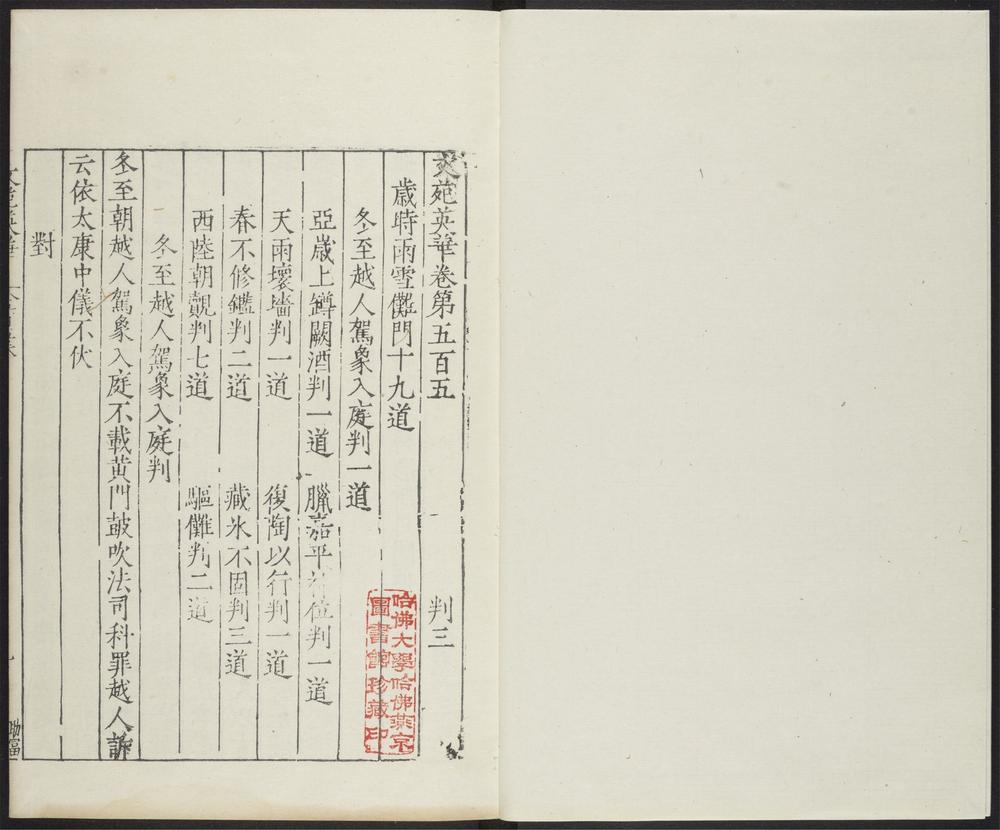 文苑英華卷第五百五 判三
歲時雨雪儺門十九道
冬至越人駕象入庭判一道
亞歲上鐏闕酒判一道 臘嘉平 位判一道
天雨壞墻判一道 復陶以行判一道
春不修鑑判二道 藏氷不固判三道
西陸朝覿判七道 驅儺判二道
冬至越人駕象入庭判
冬至朝越人駕象入庭不載黃門皷吹法司科罪越人訴
云依太康中儀不伏
對
哈佛大學哈佛燕京
圖書館珍藏印